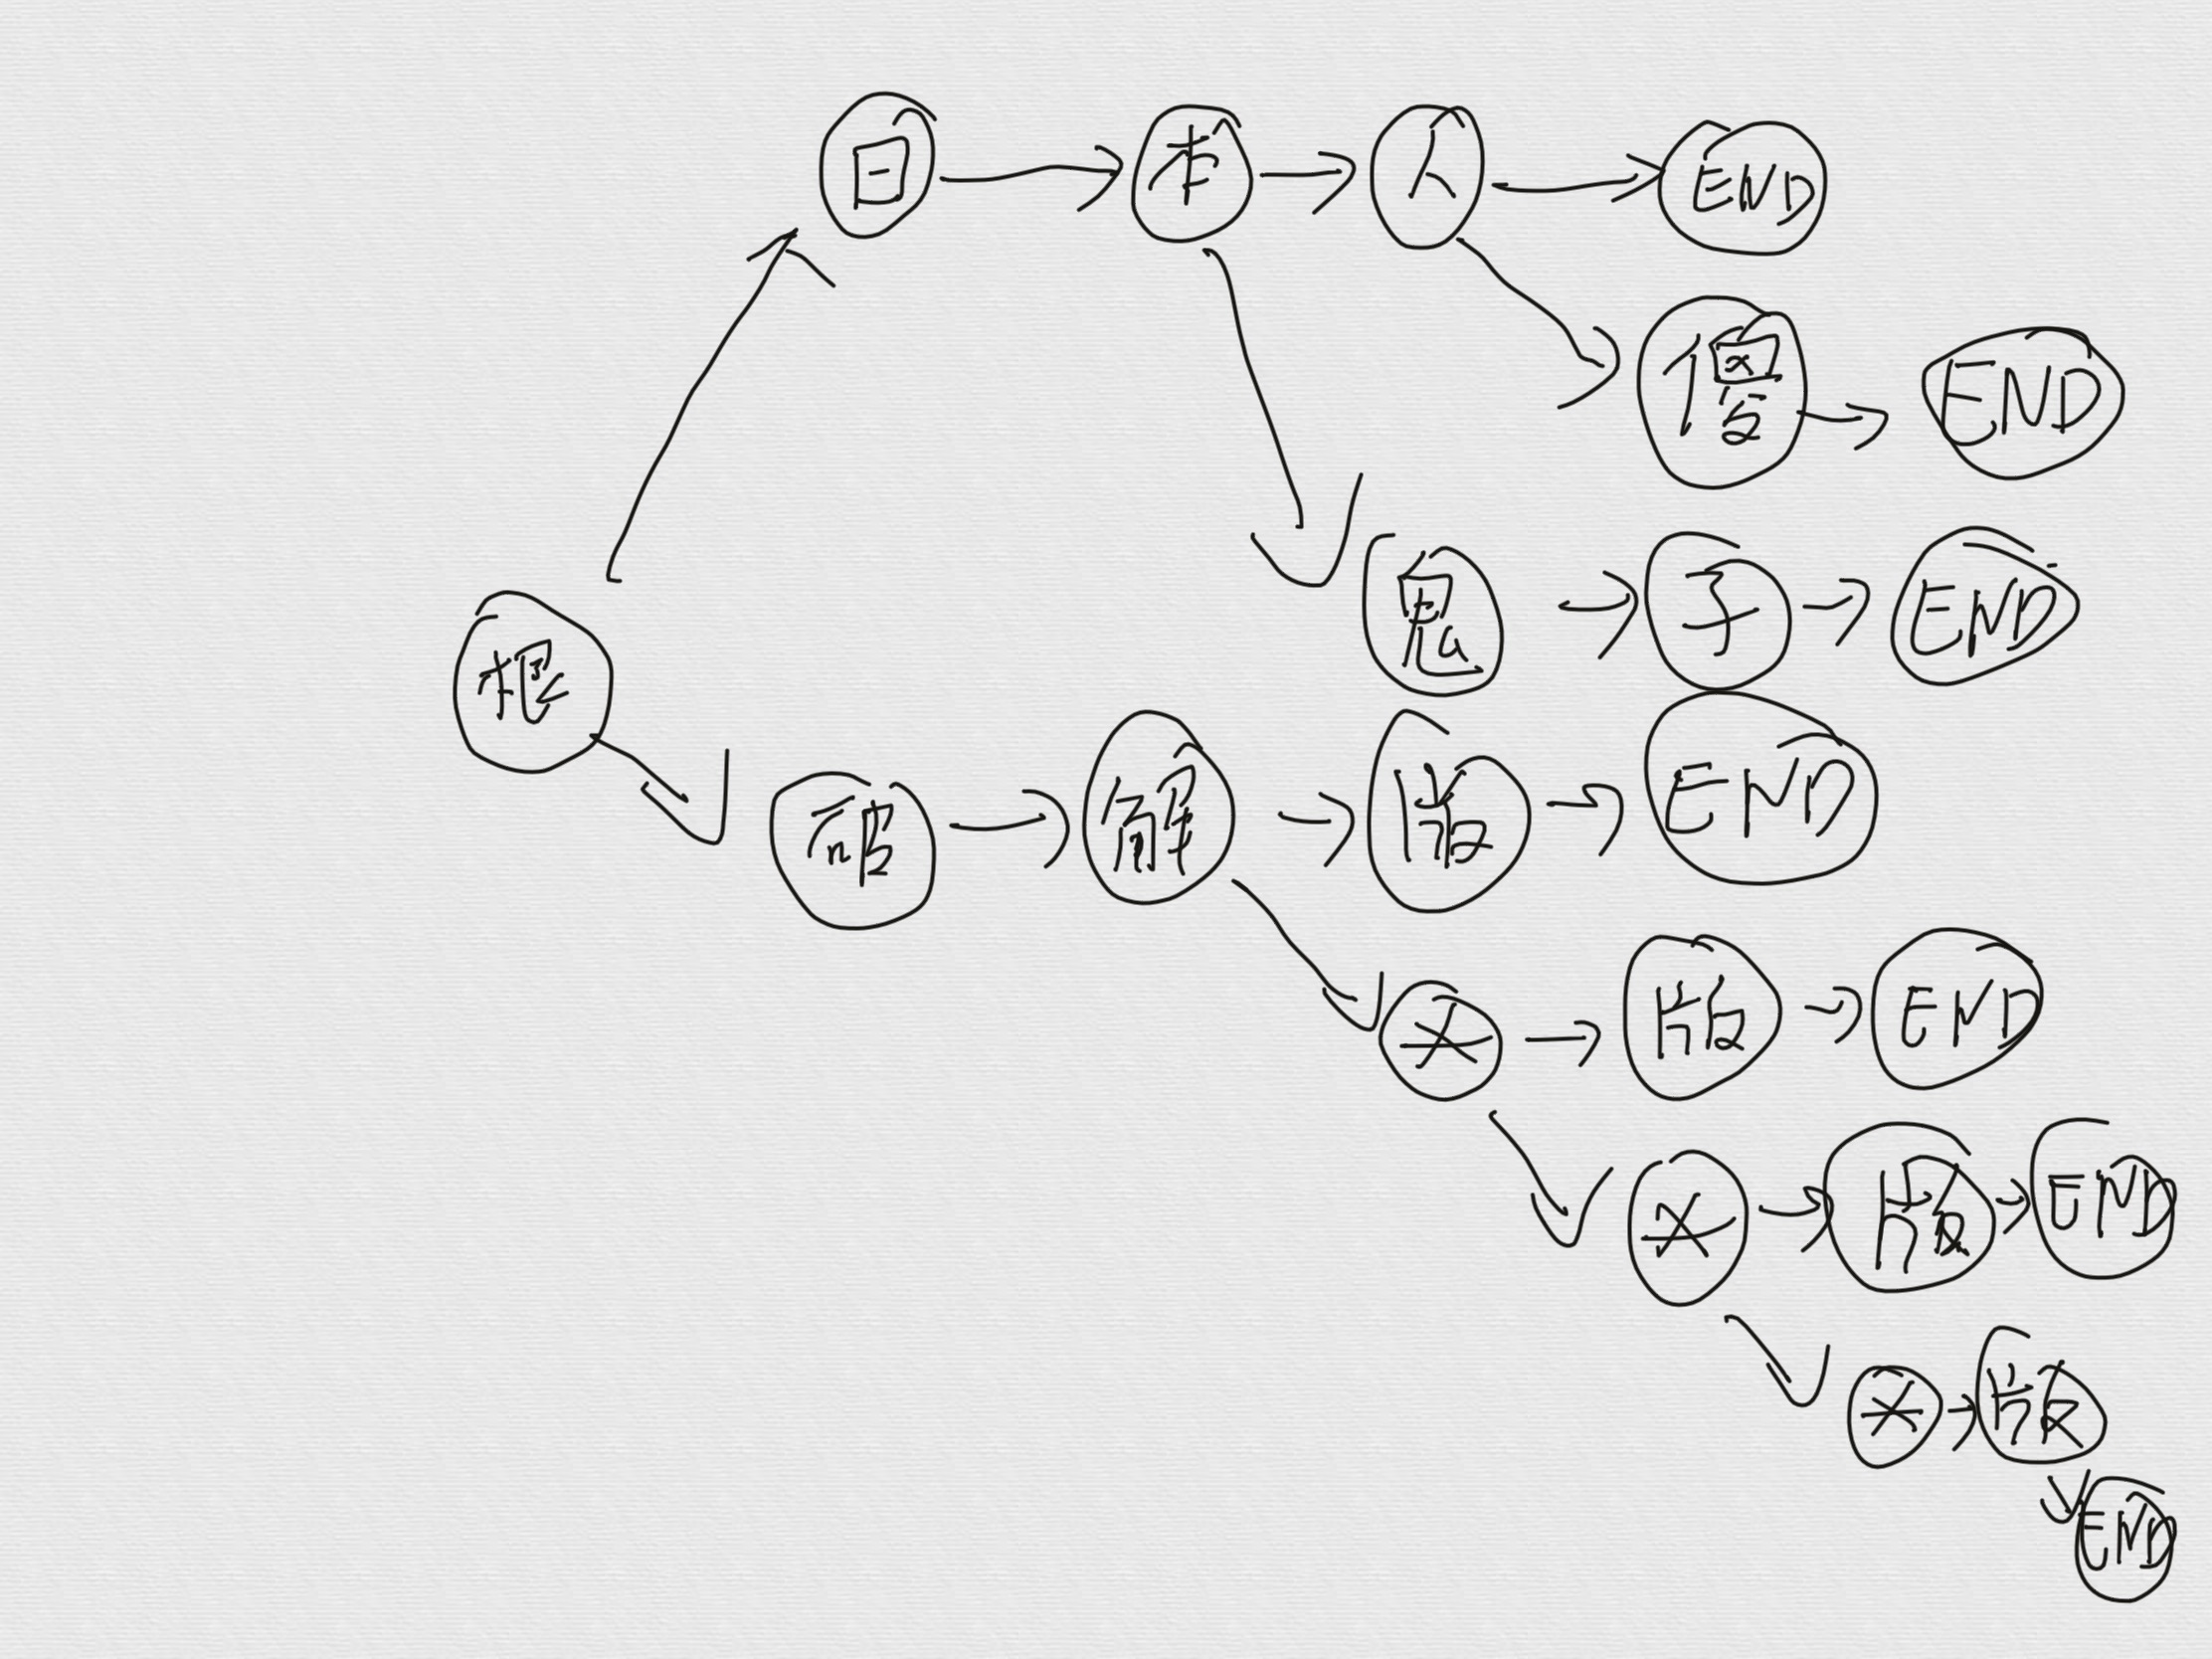 日 本 人 END
傻 END
鬼 子 END
根
破 解 版 END
* 版 END
* 版 END
* 版
END